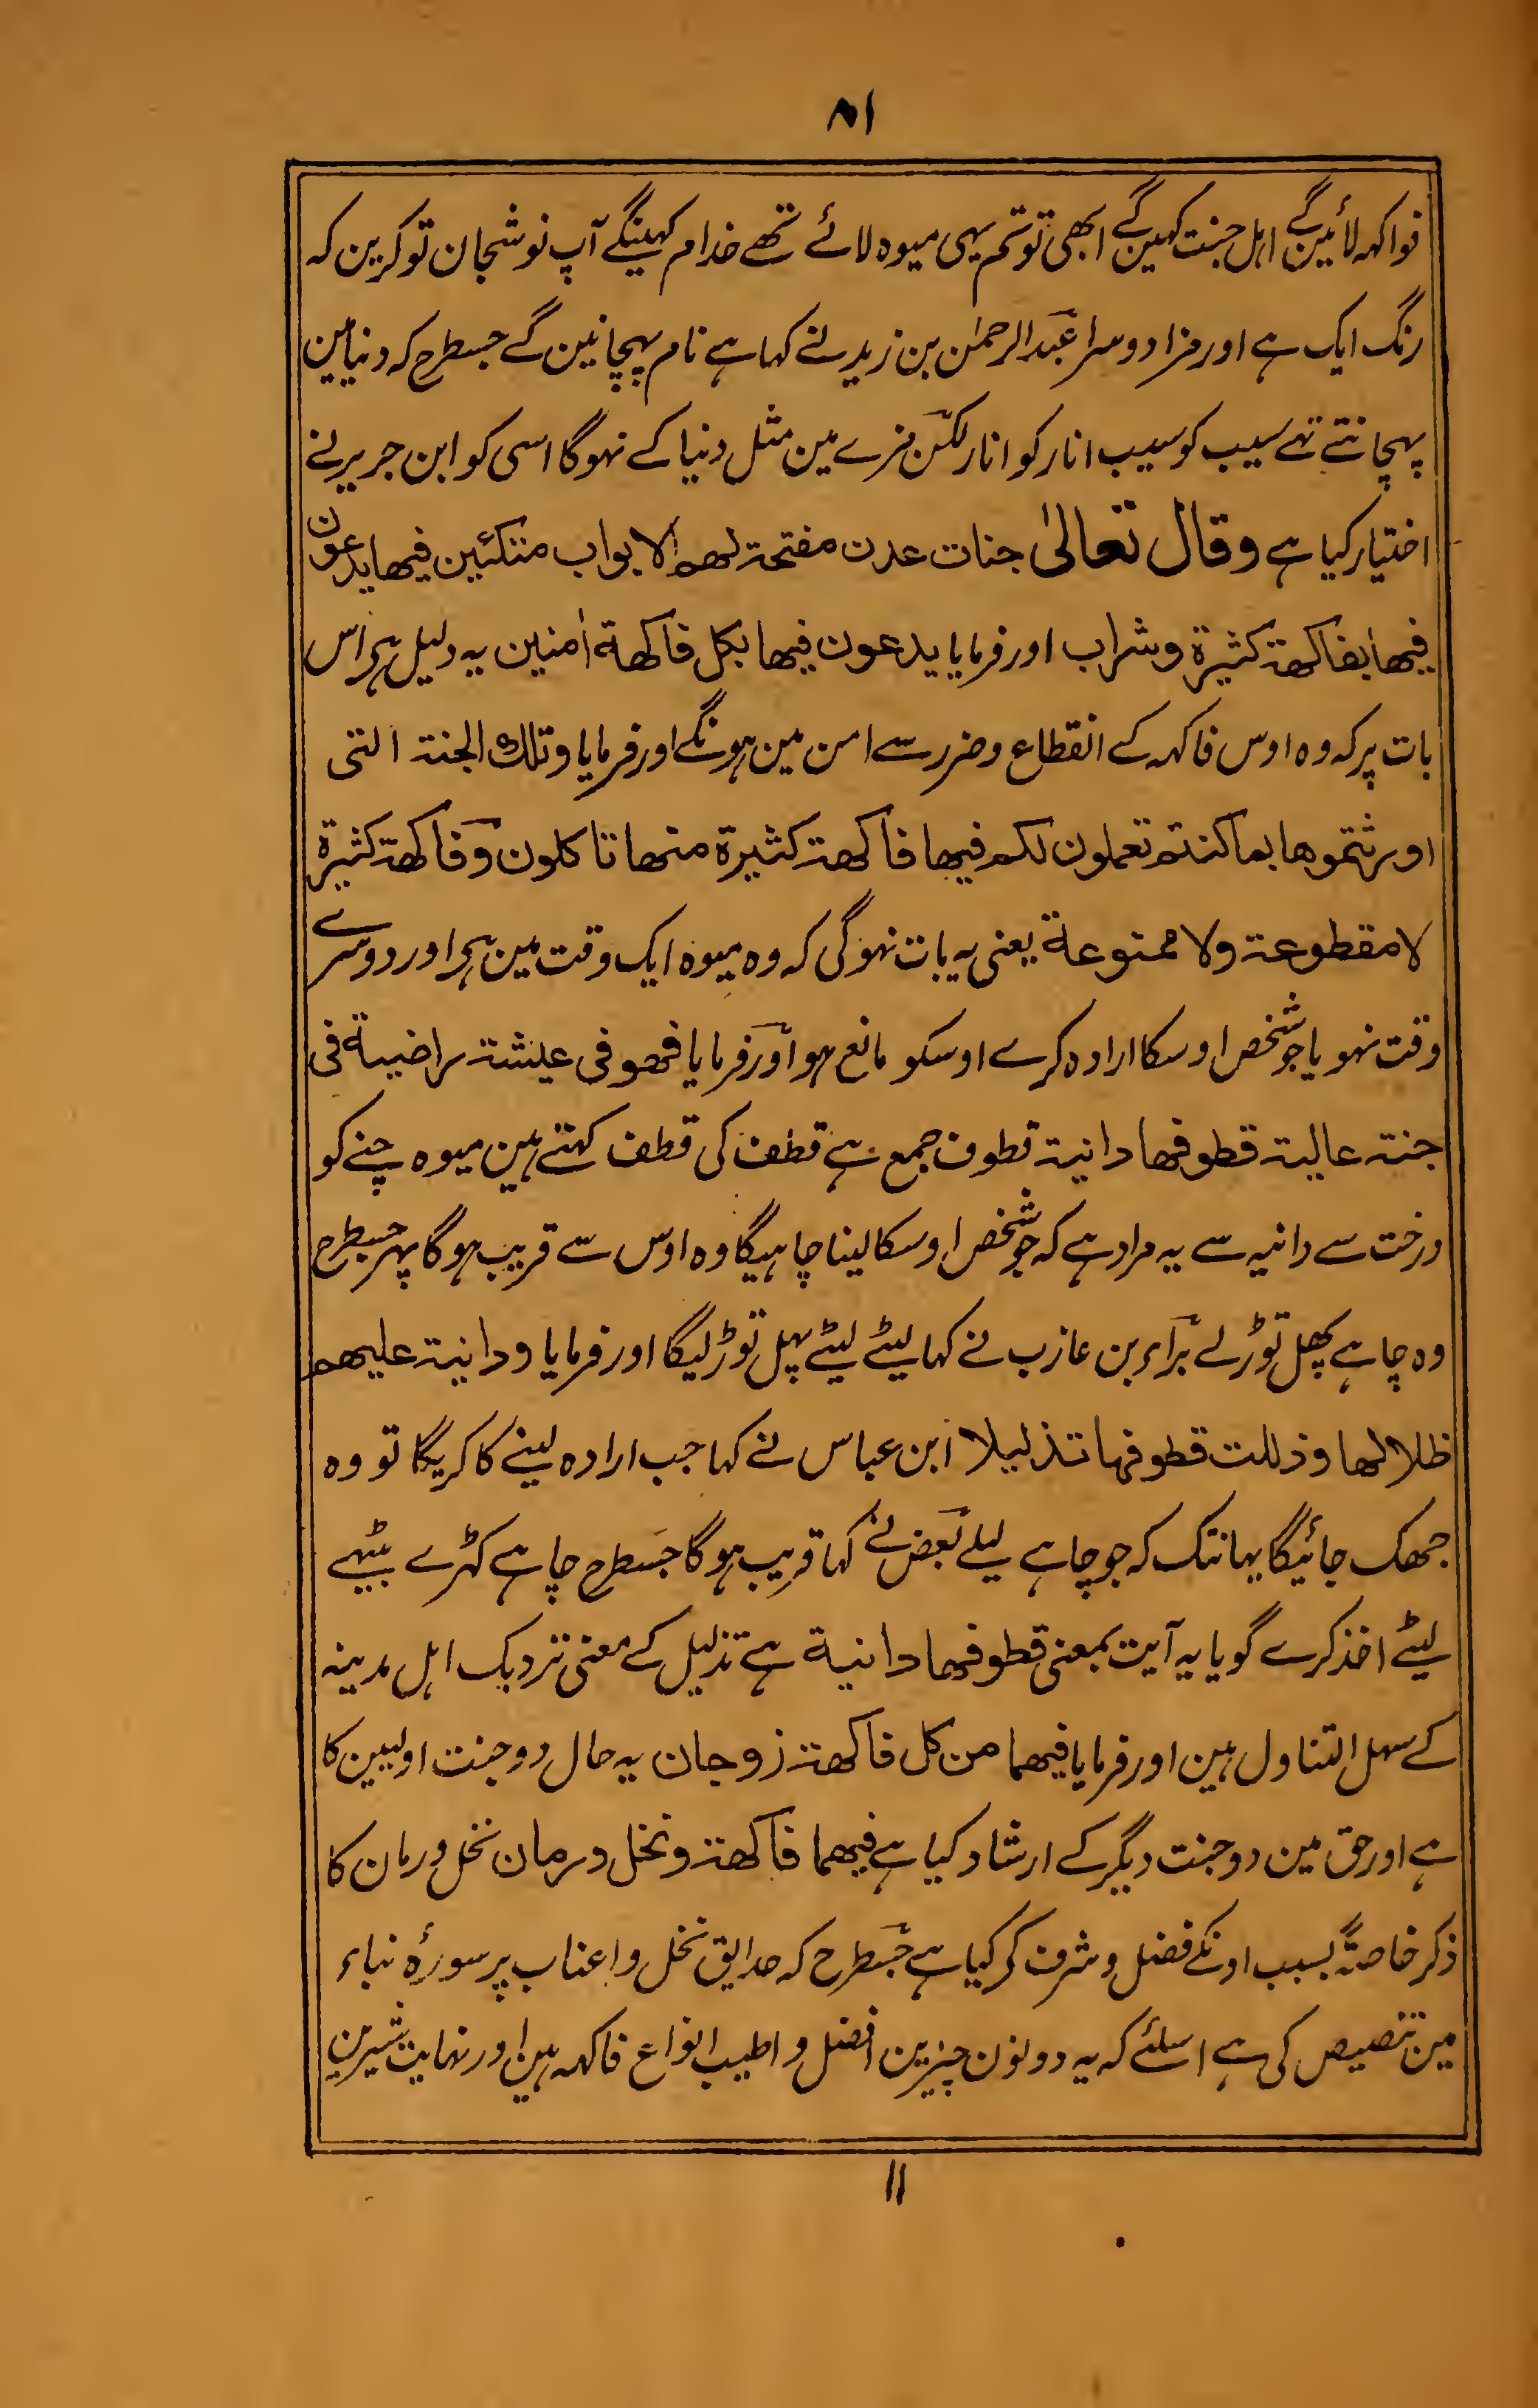 ۸۱
فواکہہ لائینگے اہل جنت کہین گے ابھی تو تم یہی میوہ لائے تھے خدام کہینگے آپ نوشجان تو کرین کہ
رنگ ایک ہے اور مزا دوسرا عبدالرحمٰن بن زید نے کہا ہے نام پہچانین گے جسطرح کہ دنیا مین
پہچانتے تہے سیب کو سیب انار کو انار لکن مزے مین مثل دنیا کے نہوگا اسی کو ابن جریر نے
اختیار کیا ہے وقال تعالیٰ جنات عدن مفتحة لھم الابواب متکئین فیھا یدعون
فیھا بفاکھة کثیرة وشراب اور فرمایا یدعون فیھا بکل فاکھة اٰمنین یہ دلیل ہی اس
بات پر کہ وہ اوس فاکہہ کے انقطاع وضرر سے امن مین ہونگے اور فرمایا وتلك الجنة التی
اورثتموھا بما کنتم تعملون لکم فیھا فاکھة کثیرة منھا تاکلون وفاکھة کثیرة
لا مقطوعة ولا ممنوعة یعنی یہ بات نہوگی کہ وہ میوہ ایک وقت مین ہی اور دوسرے
وقت نہو یا جو شخص اوسکا ارادہ کرے اوسکو مانع ہو اور فرمایا فھو فی عیشة راضیة فی
جنة عالیة قطوفھا دانیة قطوف جمع ہے قطف کی قطف کہتے ہین میوہ چنے کو
درخت سے دانیہ سے یہ مراد ہے کہ جو شخص اوسکا لینا چاہیگا وہ اوس سے قریب ہوگا پہر جسطرح
وہ چاہے پھل توڑلے برآء بن عازب نے کہا لیٹے لیٹے پہل توڑ لیگا اور فرمایا ودانیة علیھم
ظلالھا وذللت قطوفہا تذلیلا ابن عباس نے کہا جب ارادہ لینے کا کریگا تو وہ
جھک جائیگا یہانتک کہ جو چاہے لیلے بعض نے کہا قریب ہوگا جسطرح چاہے کہڑے بیٹہے
لیٹے اخذ کرے گویا یہ آیت بمعنی قطوفھا دانیة ہے تذلیل کے معنی نزدیک اہل مدینہ
کے سہل التناول ہین اور فرمایا فیھما من کل فاکھة زوجان یہ حال دو جنت اولیین کا
ہے اور حق مین دو جنت دیگر کے ارشاد کیا ہے فیھما فاکھة ونخل ورمان نخل ورمان کا
ذکر خاصةً بسبب اونکے فضل وشرف کر کیا ہے جسطرح کہ حدایق نخل واعناب پر سورۂ نباء
مین تنصیص کی ہے اسلئے کہ یہ دونون چیزین افضل واطیب انواع فاکہہ ہین اور نہایت شیرین
۱۱